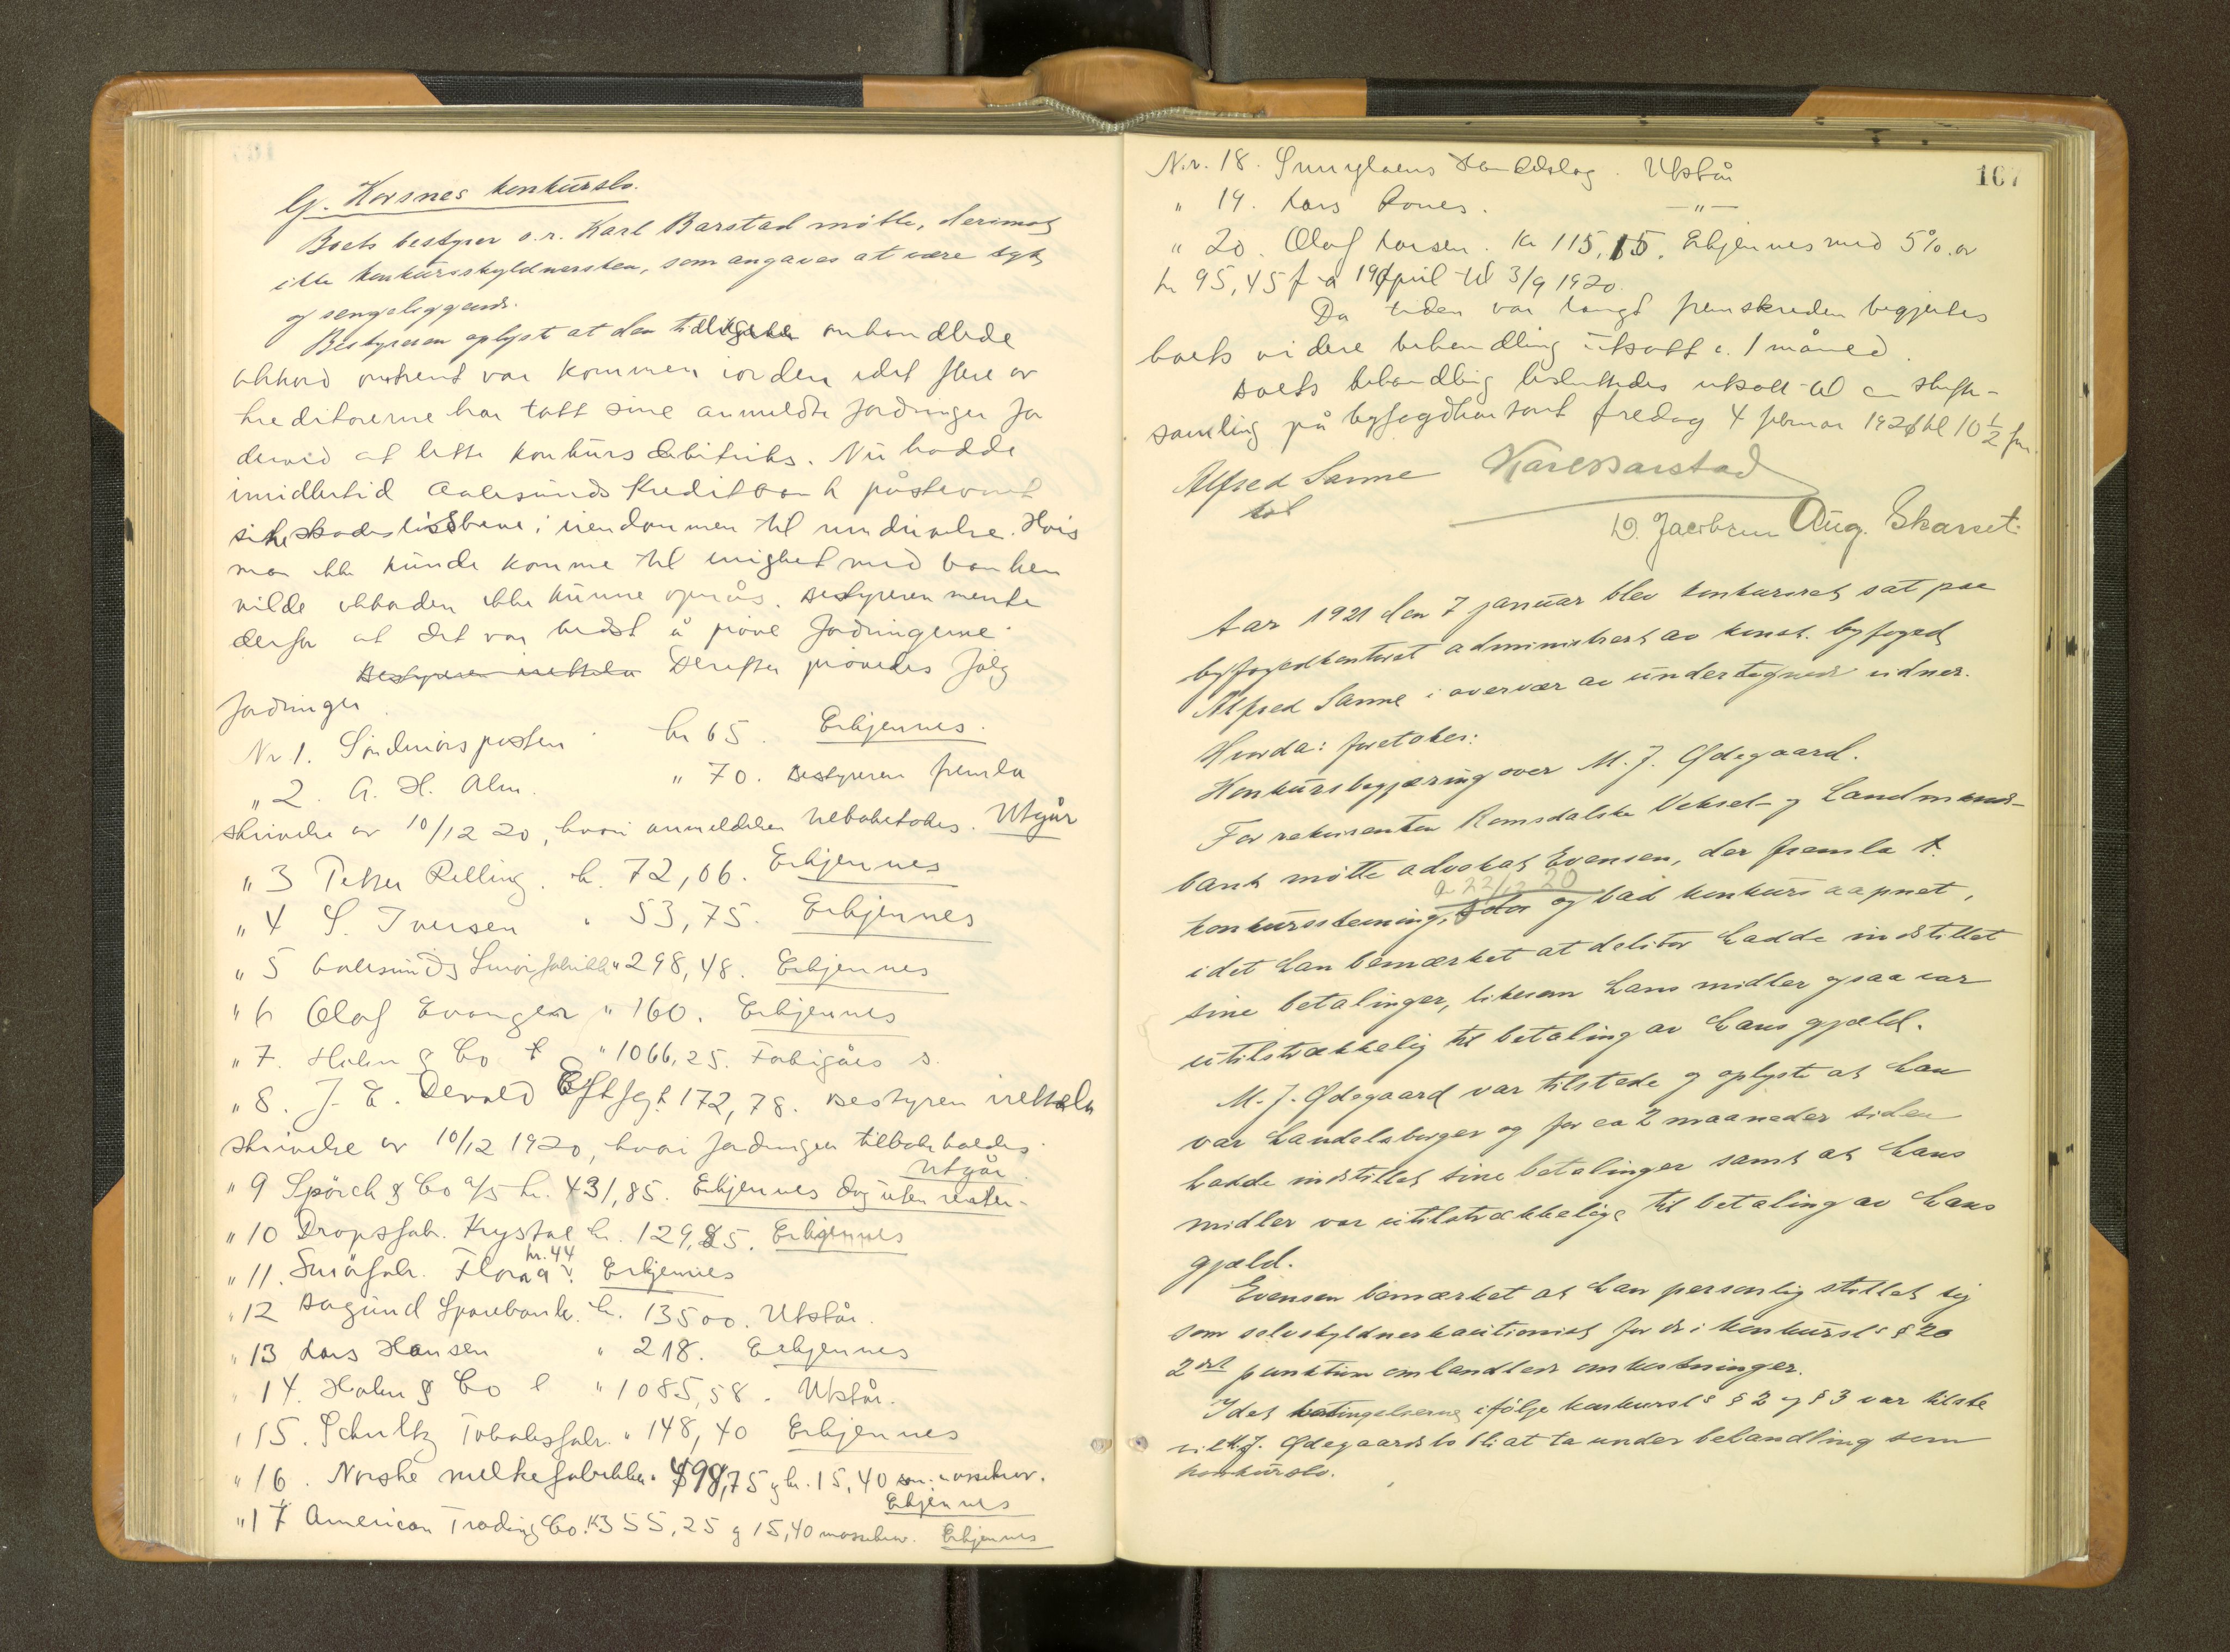 G. Korsnes konkursbo.
Boets bestyrer o.r. Karl Barstad møtte, derimot
ikke konkursskyldnersken, som angaves at være syk
og sengeliggende.
Bestyreren oplyst at den tidligere omhandlede
akkord omtrent var kommen iorden idet flere av
kreditorerne har tatt sine anmeldte fordringer for
derved at lette konkursdebitriks. Nu hadde
imidlertid Aalesunds Kreditbank påstevnet
sit skadesløsbrev i eiendommen til inndrivelse. Hvis
man ikke kunde komme til enighet med banken
vilde akkorden ikke kunne opnås. Bestyreren mente
derfor at det var bedst å prøve fordringerne.
Derefter prøvedes følg
fordringer.
Nr 1. Søndmørsposten kr 65. Erkjennes.
" 2. A. H. Alm. " 70. Bestyreren fremla
skrivelse av 10/12 20, hvori anmeldelsen tilbaketokes. Utgår
" 3 Petter Relling. kr. 72,06. Erkjennes
" 4 S. Iversen " 53,75. Erkjennes
" 5 Aalesunds Smørfabrikk " 298,48. Erkjennes
" 6 Olaf Evanger " 160. Erkjennes
" 7. Holm & Co " 1066,25. Forbigåes
" 8. J. E. Devold Eftflg. 172,78. Bestyren
skrivelse av 10/12 1920, hvori fordringen tilbakekaldes.
Utgår
" 9 Spörck & Co a/s kr. 431,85. Erkjennes dog uten renter.
" 10 Dropsfabr. Krystal kr. 129,85. Erkjennes
kr. 44
" 11. Smørfabr. Flora Erkjennes
" 12 Borgund Sparebank. kr. 13500. Utstår.
" 13 Lars Hansen " 218. Erkjennes
" 14. Holm & Co " 1085,58. Utstår.
" 15. Schultz Tobaksfabr. " 148,40 Erkjennes
" 16. Norske melkefabrikker. 498,75 og kr. 15,40
Erkjennes
" 17 American Trading Co. K 355,25 og 15,40 Erkjennes
167
Nr. 18. Sunnylvens Handelslag. Utstår
" 19. Lars Rones. — " —
" 20. Olaf Larsen. Kr 115,15. Erkjennes med 5% av
kr 95,45 fra 19 april til 3/9 1920.
Da tiden var langt fremskreden begjærtes
boets videre behandling utsatt c. 1 måned.
Boets behandling besluttedes utsatt til en skifte-
samling på byfogdkontoret fredag 4 februar 1921 kl 10 1/2 fm.
Alfred Sanne Karl Barstad
D. Jacobsen Aug. Skarset
Aar 1921 den 7 januar blev konkursret sat paa
byfogedkontoret administrert av konst. byfoged
Alfred Sanne i overvær av undertegnede vidner.
Hvorda: foretokes:
Konkursbegjæring over M. J. Ødegaard.
For rekvirenten Romsdalske Veksel- og Landmands-
bank møtte advokat Evensen, der fremla 1.
a 22/12 20
konkursstevning, og bad konkurs aapnet,
idet han bemærket at debitor hadde indstillet
sine betalinger, likesom hans midler ogsaa var
utilstrækkelig til betaling av hans gjæld.
M. J. Ødegaard var tilstede og oplyste at han
var handelsborger og for ca 2 maaneder siden
hadde indstillet sine betalinger samt at hans
midler var utilstrækkelige til betaling av hans
gjæld.
Evensen bemærket at han personlig stillet sig
som selvskyldnerkautionist for de i konkursl's § 20
2det punktum omhandlede omkostninger.
Idet betingelserne ifølge konkursl's § 2 og § 3 var tilstede
vil M. J. Ødegaards bo bli at ta under behandling som
konkursbo.